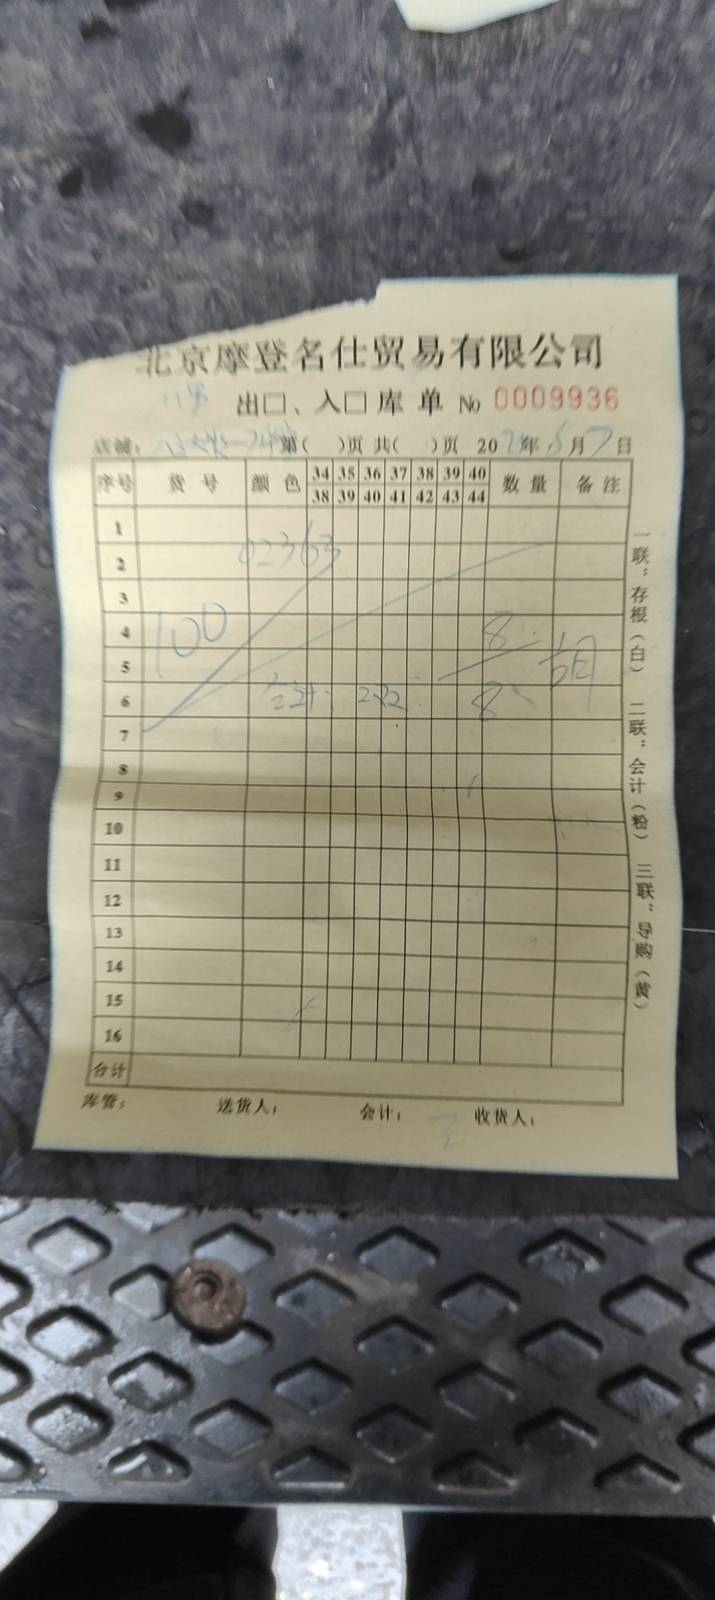 北京摩登名仕贸易有限公司
出口、入口库单 No 0009936
店铺： 第( )页 共( )页 20 年 5月7日
序号 货号 颜色 34 35 36 37 38 39 40 数量 备注
38 39 40 41 42 43 44
1
2 02363
3
4 100 8
5 胡
6 合计: 272 8
7
8
9
10
11
12
13
14
15
16
合计
库管： 送货人： 会计： 收货人：
一联：存根（白） 二联：会计（粉） 三联：导购（黄）